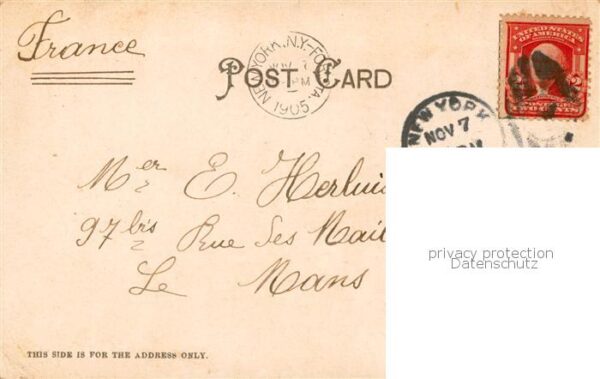 France
NEW YORK, N.Y.
NOV 7
PM
1905
POST CARD
UNITED STATES
OF AMERICA
2
TWO CENTS
NEW YORK
NOV 7
Mer E.
97 bis Rue des
Le Mans
privacy protection
Datenschutz
THIS SIDE IS FOR THE ADDRESS ONLY.